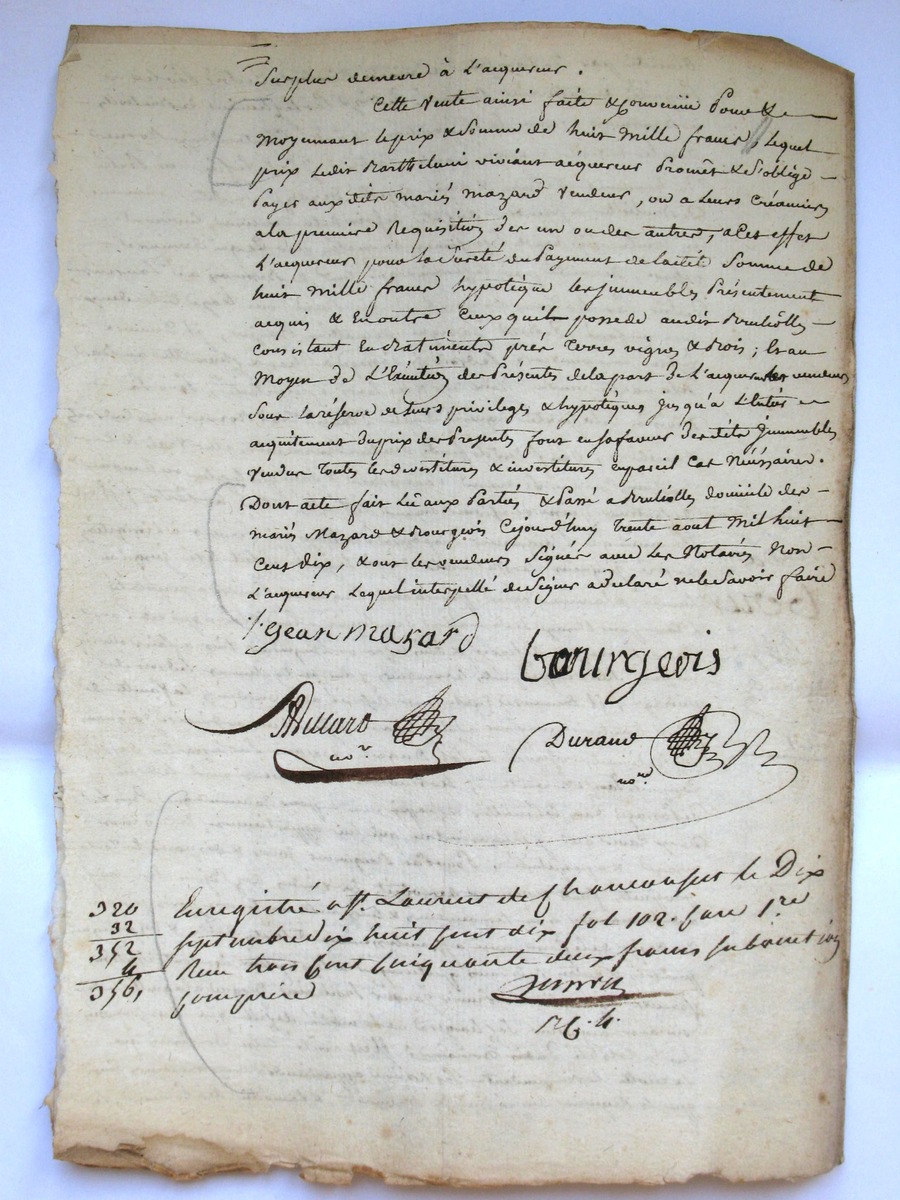 Surplus demeure à L'acquereur.
Cette Vente ainsi faite & convenüe Pour &
Moyennant le prix & Somme de huit Mille francs, Lequel
prix Ledit Barthelemi viviant acquereur Promêt & s'oblige
Payer auxdits mariés mazard Vendeur, ou a Leurs Créanciers
ala premiere Requisition des un ou des autres, a Cet effet
L'acquereur pour la Sureté du Payement de ladite Somme de
huit Mille francs hypotèque les immeubles Présentement
acquis & En outre Ceux qu'il possede audit Brulliolles
consistant En Batiments prés terres vignes & Bois; Et au
Moyen de L'Exécution des Présentes de la part de L'acquereur les vendeurs
Sous la réserve de leurs privileges & hypotèques jusqu'a L'Entier
acquitement du prix des Presentes font en sa faveur desdits Immeubles
Vendus Toutes les devestitures & investitures en pareil Cas Nécéssaires.
Dont acte fait Lû aux Parties & Passé a Brulliolles domicile des
mariés Mazard & Bourgeois Cejourd'huy Trente aout Mil huit
Cent dix, & ont les vendeurs Signés avec les Notaires Non
L'acquereur Lequel interpellé de Signer a declaré ne le Savoir faire
Jean mazard
bourgeois
Durand
nore
Enregistré a st. Laurent de Chamousset le Dix
septembre dix huit cent dix fol 102. Case 1re
Reçu trois cent cinquante deux francs subvention
comprise
320
32
352
4
356,